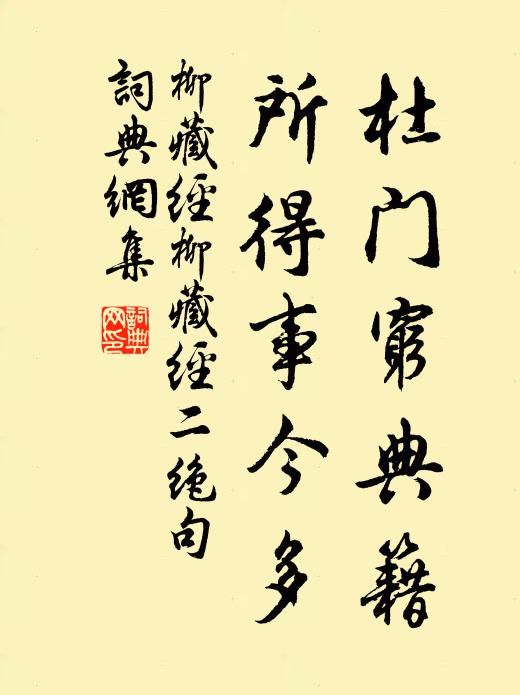 杜门窮典籍
所得事今多
柳藏經柳藏經二绝句
詞典網集
詞典网印